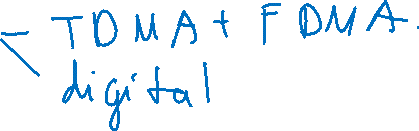 TDMA + FDMA.
digital